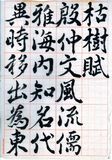 枯樹賦
殷仲文風流儒
雅海内知名代
異時移出為東